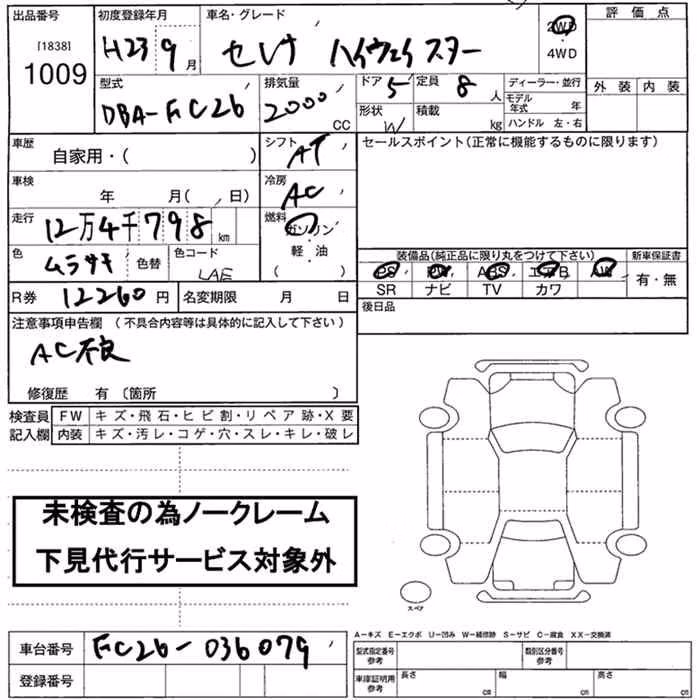 出品番号 初度登録年月 車名・グレード 評価点
[1838]
1009 H23 9月 セレナ ハイウェイスター 2WD・4WD
型式 排気量 ドア 5 定員 8人 ディーラー・並行 外装 内装
DBA-FC26 2000CC 形状 W 積載 kg モデル年式 年
ハンドル 左・右
車歴 シフト セールスポイント(正常に機能するものに限ります)
自家用・( ) AT
車検 冷房
年 月( 、日) AC
走行 燃料
12万4千798km ガソリン・軽油
色 色コード ( )
ムラサキ 色替 LAE
装備品(純正品に限り丸をつけて下さい) 新車保証書
PS PW ABS エアB AW 有・無
SR ナビ TV カワ
R券 12260円 名変期限 月 日 後日品
注意事項申告欄 (不具合内容等は具体的に記入して下さい)
AC不良
修復歴 有 〔箇所 〕
検査員 FW キズ・飛石・ヒビ割・リペア跡・X要
記入欄 内装 キズ・汚レ・コゲ・穴・スレ・キレ・破レ
未検査の為ノークレーム
下見代行サービス対象外
スペア
A-キズ E-エクボ U-凹み W-補修跡 S-サビ C-腐食 XX-交換済
車台番号 FC26-036079 型式指定番号 参考 類別区分番号 参考
登録番号 車庫証明用 参考 長さ cm 幅 cm 高さ cm